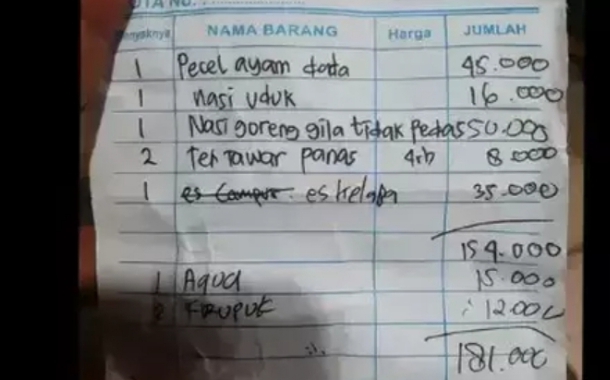 OTA NO.
Banyaknya NAMA BARANG Harga JUMLAH
1 Pecel ayam dada 45.000
1 nasi uduk 16.000
1 Nasi goreng gila tidak pedas 50.000
2 Teh Tawar panas 4rb 8.000
1 es campur es kelapa 35.000
154.000
1 Aqua 15.000
krupuk 12.000
181.000